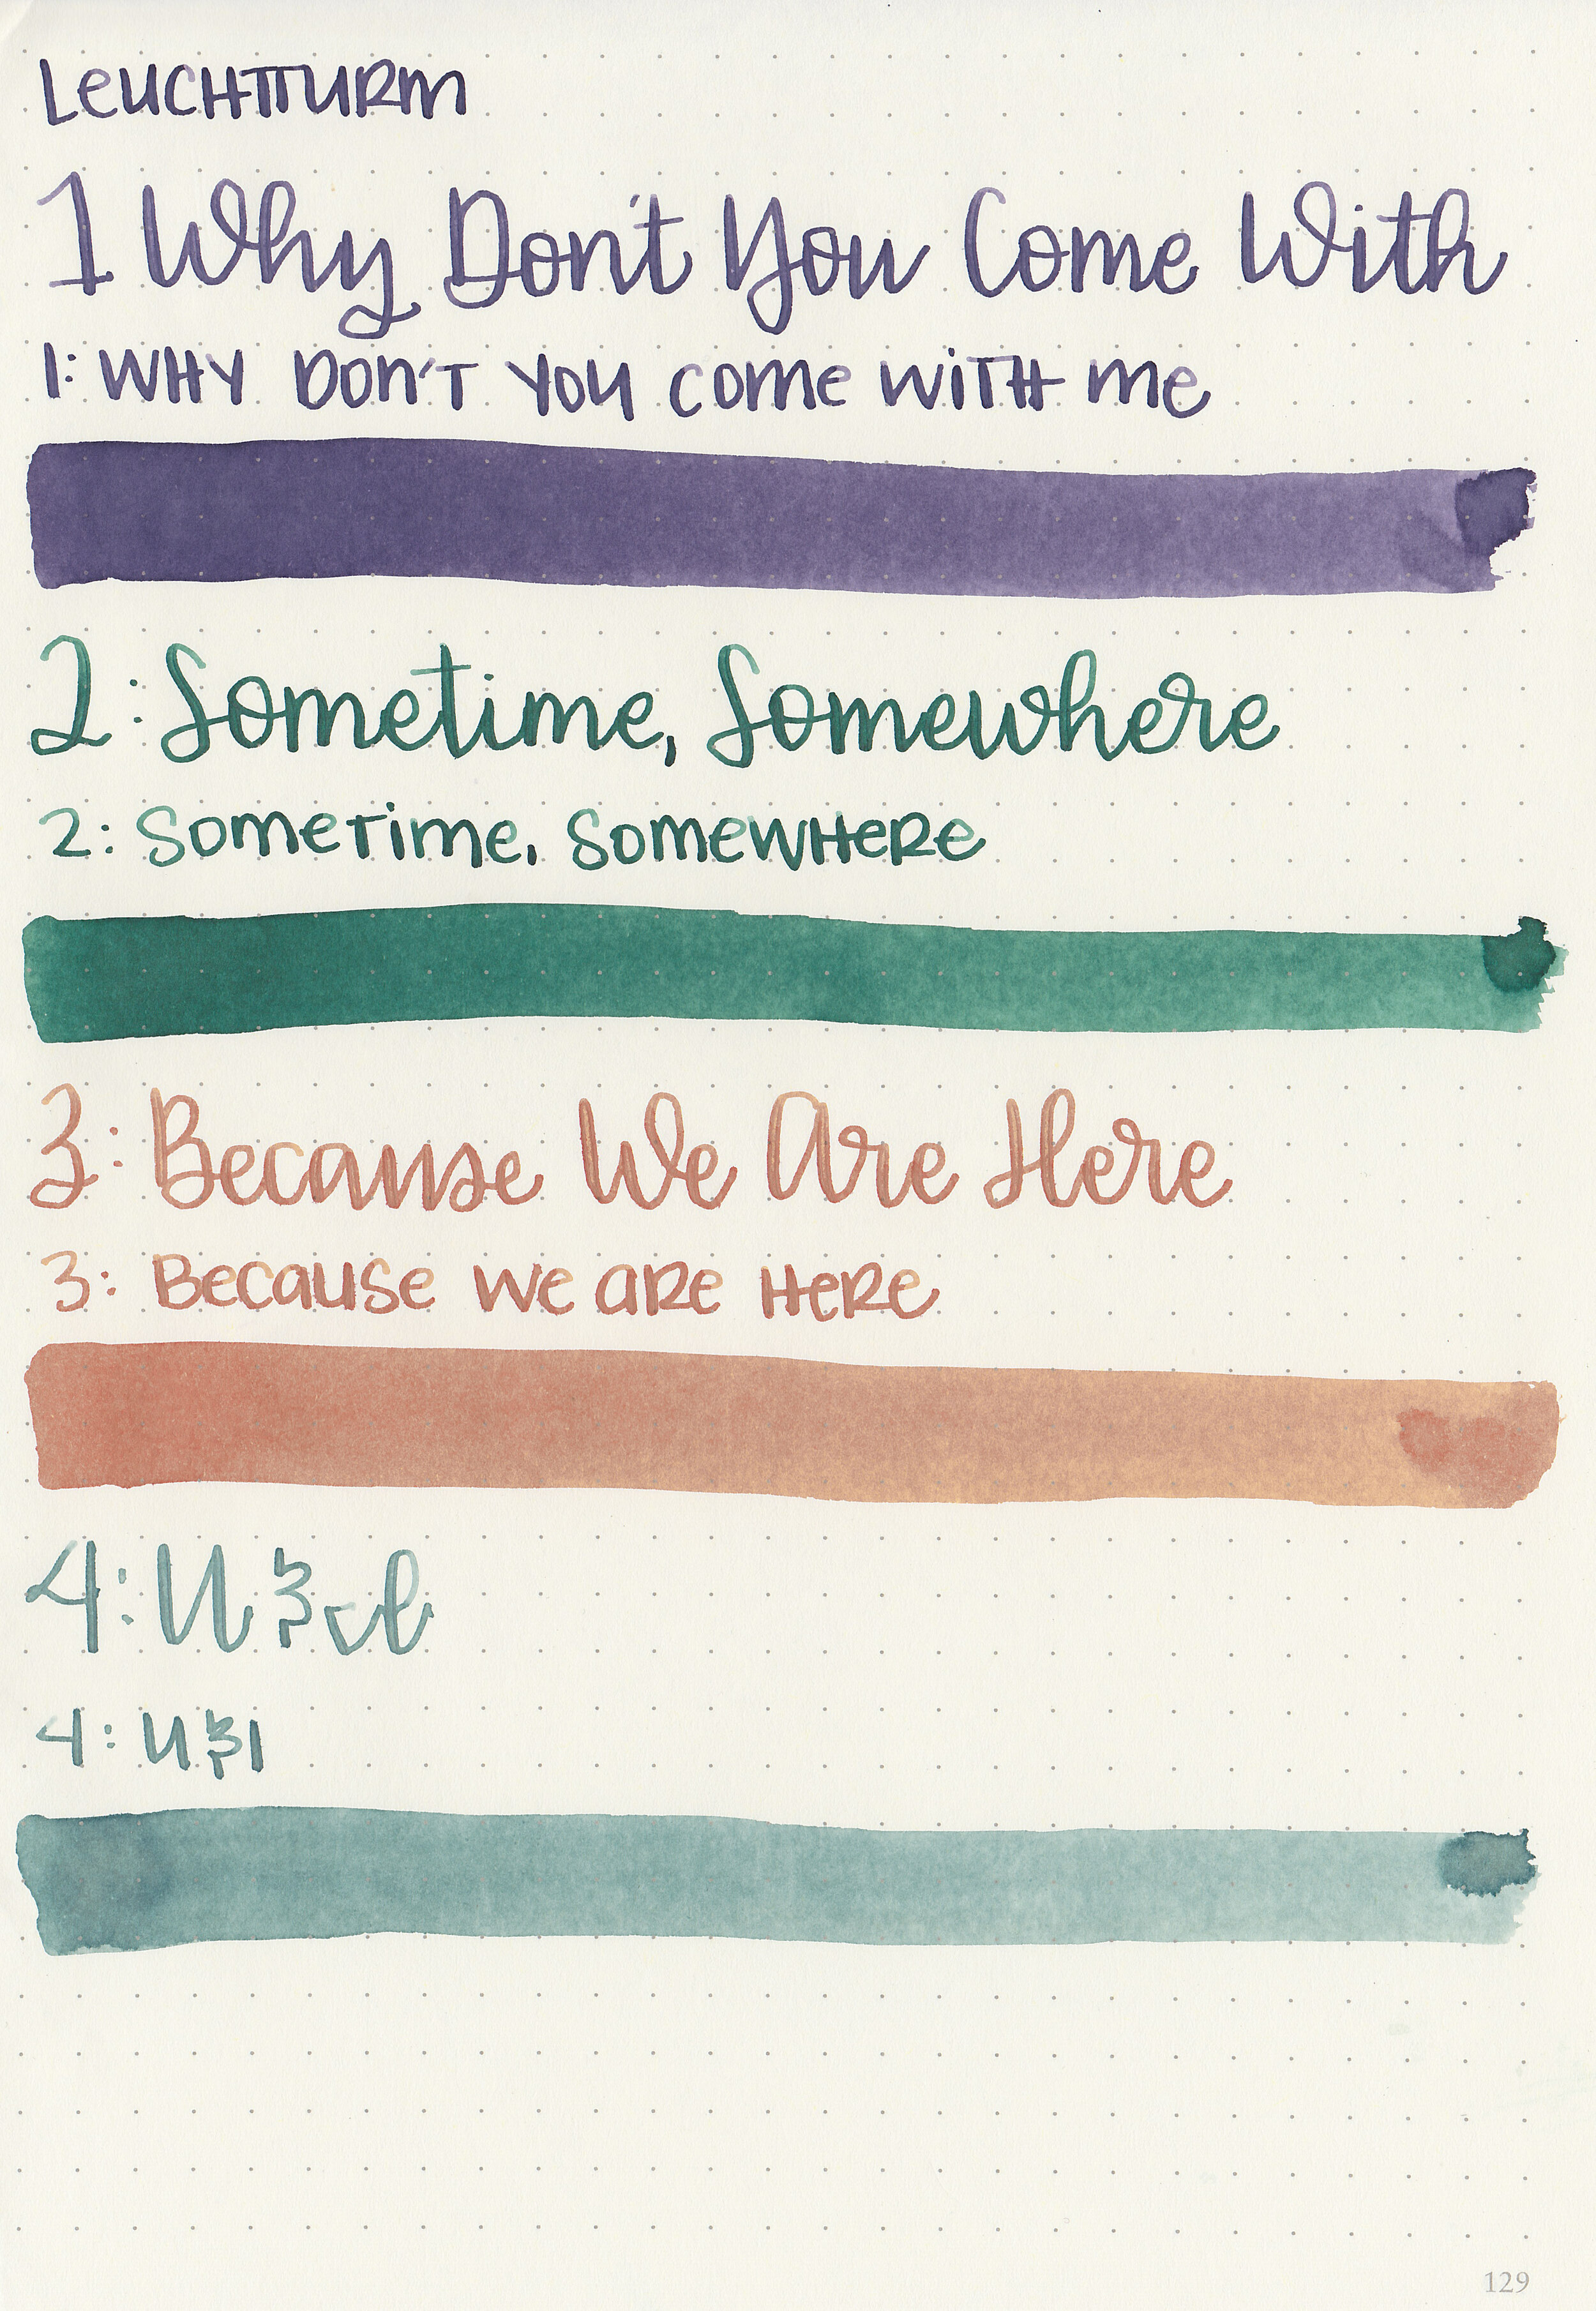 LeUCHTTURM
1 Why Don't You Come With
1: WHY DON'T YOU COME WITH me
2: Sometime, Somewhere
2: Sometime, SomewHeRe
3: Because We Are Here
3: Because we aRe HeRe
4: U & I
4: U & I
129